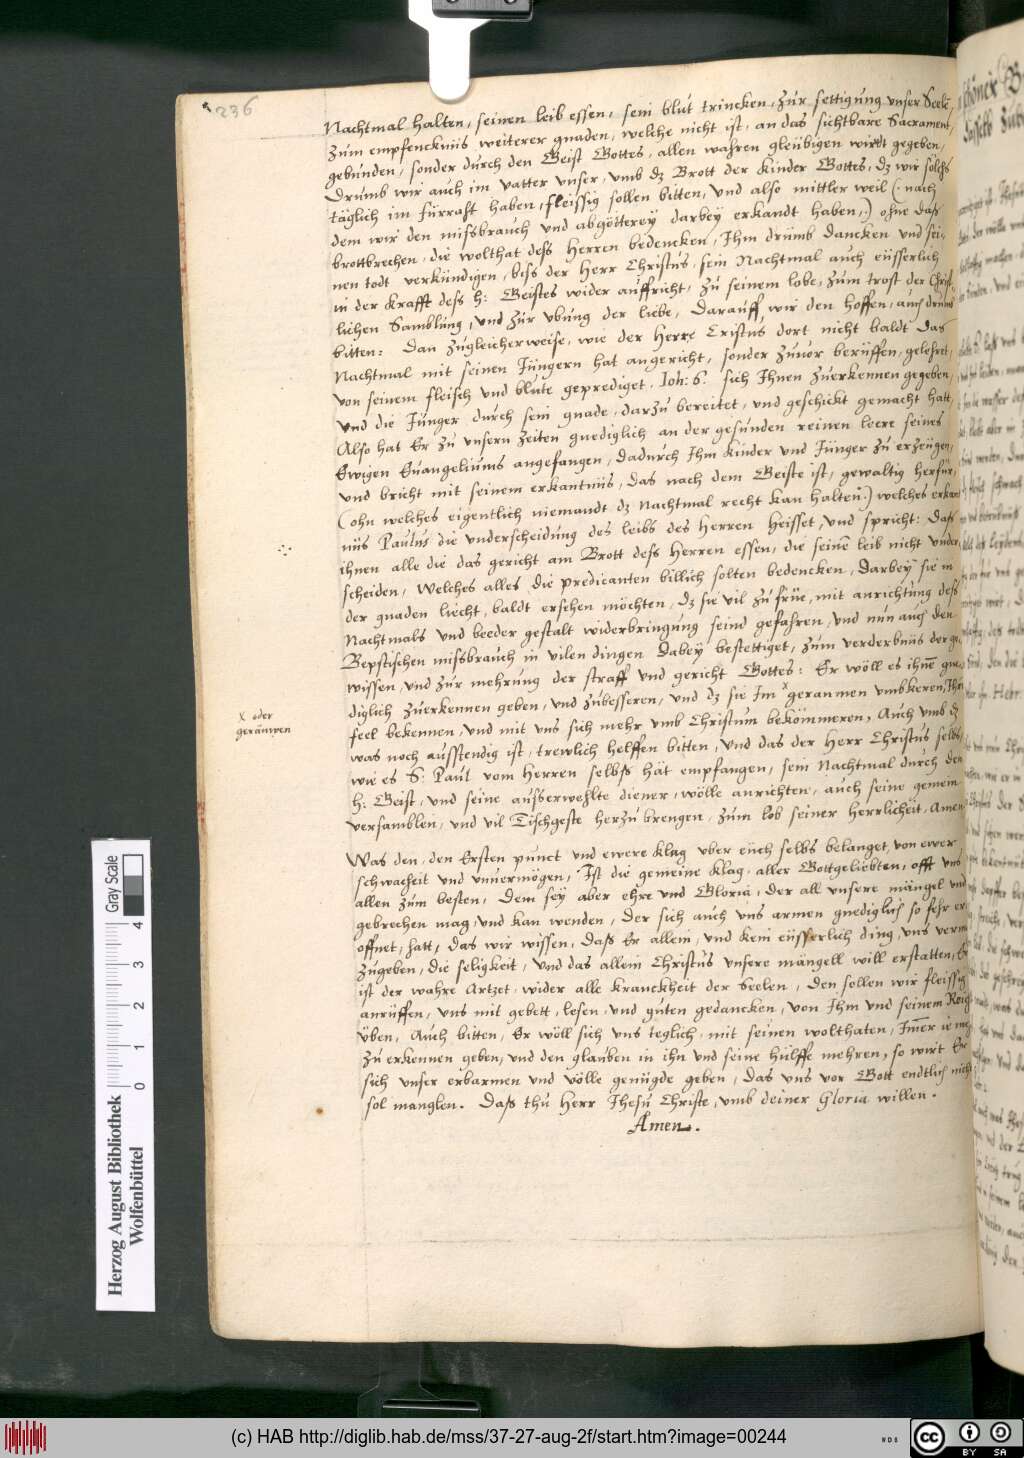 236
Nachtmal halten, seinen leib essen, sein blut trincken, zur settigung unser Seelē,
zum empfencknüs weiterer gnaden, welche nicht ist, an das sichtbare Sacrament,
gebunden, sonder durch den Geist Gottes, allen wahren gleübigen wirdt gegeben,
Drumb wir auch im vatter unser, umb dz Brott der Kinder Gottes, dz wir solchs
täglich im fürraht haben, fleissig sollen bitten, und also mittler weil (: nach
dem wir den missbrauch und abgötterey darbey erkandt haben,) ohne daß
brottbrechen, die wolthat dess Herren bedencken, Ihm drümb dancken und sei-
nen todt verkündigen, biss der Herr Christus, sein Nachtmal auch eüsserlich
in der krafft dess h: Geistes wider auffricht, zu seinem lobe, zum trost der Christ-
lichen Samblung, und zur ubung der liebe, Darauff wir den hoffen, auch drumb
bitten: Dan zugleicherweise, wie der Herre Cristus dort nicht baldt das
Nachtmal mit seinen Jüngern hat angericht, sonder zuvor berüffen, gelehret,
von seinem fleisch und blute geprediget, Joh: 6. sich Ihnen zuerkennen gegeben,
und die Jünger durch sein gnade, darzu bereitet, und geschickt gemacht hatt,
Also hat Er zu unsern zeiten gnediglich an der gesunden reinen leere seines
Ewigen Euangeliums angefangen, dadurch Ihm Kinder und Jünger zu erzeügen,
und bricht mit seinem erkantnüs, das nach dem Geiste ist, gewaltig herfür,
(ohn welches eigentlich niemandt dz Nachtmal recht kan halten:) welches erkant
nüs Paulus die underscheidung des leibs des Herren heisset, und spricht: Daß
ihnen alle die das gericht am Brott dess Herren essen, die seinē leib nicht under
scheiden, Welches alles die predicanten billich solten bedencken, darbey sie in
der gnaden liecht, baldt ersehen möchten, dz sie vil zu früe, mit anrichtung dess
Nachtmals und beeder gestalt widerbringung seind gefahren, und nun auch den
Bepstischen missbrauch in vilen dingen dabey bestettiget, zum verderbnüs der ge
wissen, und zur mehrung der straff und gericht Gottes: Er wöll es ihnē gne
diglich zuerkennen geben, und zubesseren, und dz sie Im x geranmen umbkeren, Ihrn
feel bekennen, und mit uns sich mehr umb Christum bekömmeren, Auch umb dz
was noch ausstendig ist, trewlich helffen bitten, und das der Herr Christus, selbs
wie es S: Paul vom Herren selbss hät empfangen, sein Nachtmal durch den
h: Geist, und seine ausserwehlte diener, wölle anrichten, auch seine gemein
versamblen, und vil Tischgeste herzu brengen, zum lob seiner herrlicheit, Amen
x oder
geräumen
Was den, den Ersten punct und ewere klag uber eüch selbs belanget, von ewer
schwacheit und unvermögen, Ist die gemeine klag, aller Gottgeliebten, offt uns
allen zum besten, Dem sey aber ehre und Gloria, der all unsere mängel und
gebrechen mag, und kan wenden, der sich auch uns armen gnediglich so fehr er
offnet, hatt, das wir wissen, daß Er allein, und kein eüsserlich ding, uns verm
zugeben, die seligkeit, und das allein Christus unsere mängell will erstatten, Er
ist der wahre Artzet, wider alle kranckheit der Seelen, Den sollen wir fleissig
anrüffen, uns mit gebett, lesen, und guten gedancken, von Ihm und seinem Reich
üben, Auch bitten, Er wöll sich uns teglich, mit seinen wolthaten, Im̄er ie meh
zu erkennen geben, und den glauben in ihn und seine hülffe mehren, so wirt Er
sich unser erbarmen und völle genügde geben, das uns vor Gott endtlich nicht
sol manglen. Daß thu Herr Jhesu Christe, umb deiner Gloria willen.
Amen.
Gray Scale
4 3 2 1 0
Herzog August Bibliothek
Wolfenbüttel
(c) HAB http://diglib.hab.de/mss/37-27-aug-2f/start.htm?image=00244
WDB
cc
BY SA